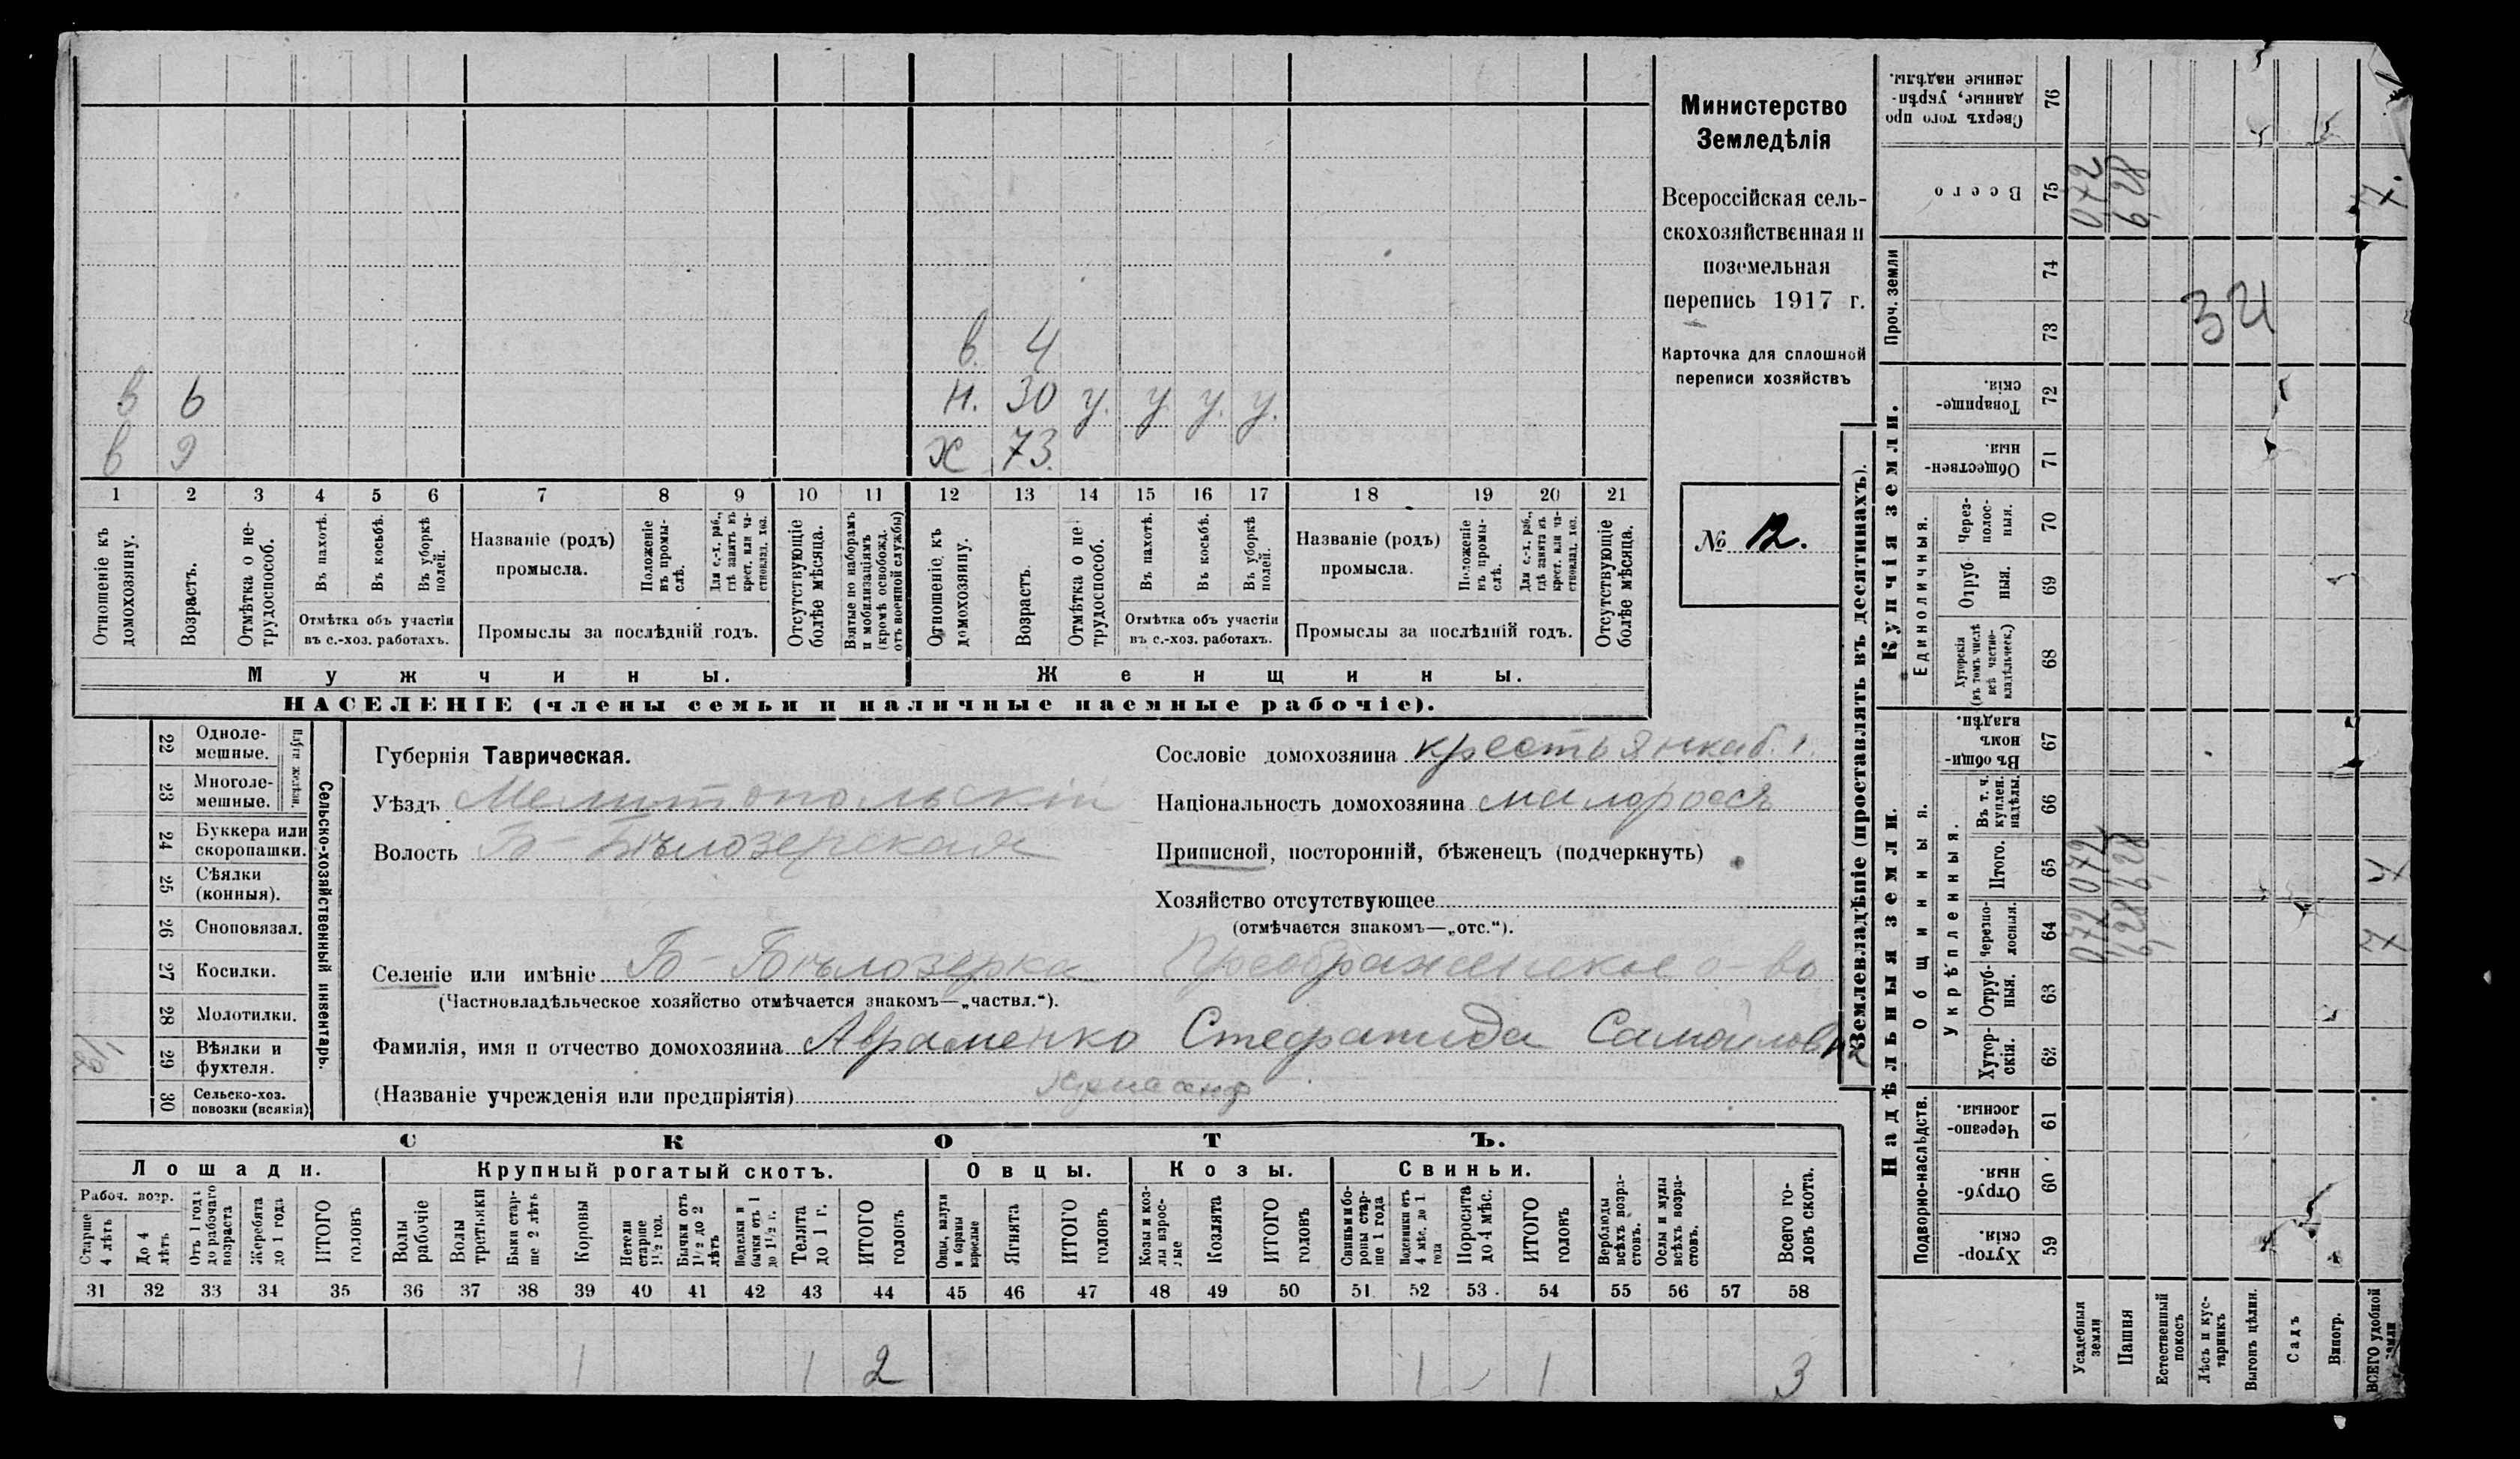 в. 4
в 6 н. 30 у. у у. у.
в 9 х 73.
1 2 3 4 5 6 7 8 9 10 11 12 13 14 15 16 17 18 19 20 21
Отношеніе къ домохозяину.
Возрастъ.
Отмѣтка о не-трудоспособ.
Въ пахотѣ.
Въ косьбѣ.
Въ уборкѣ полей.
Отмѣтка объ участіи
въ с.-хоз. работахъ.
Названіе (родъ)
промысла.
Положеніе въ промы-слѣ.
Для с.-х. раб., гдѣ занятъ въ крест. или ча-стновлад. хоз.
Промыслы за послѣдній годъ.
Отсутствующіе болѣе мѣсяца.
Взятые по наборамъ и мобилизаціямъ (кромѣ освобожд. отъ военной службы)
Отношеніе къ домохозяину.
Возрастъ.
Отмѣтка о не-трудоспособ.
Въ пахотѣ.
Въ косьбѣ.
Въ уборкѣ полей.
Отмѣтка объ участіи
въ с.-хоз. работахъ.
Названіе (родъ)
промысла.
Положеніе въ промы-слѣ.
Для с.-х. раб., гдѣ занята въ крест. или ча-стновлад. хоз.
Промыслы за послѣдній годъ.
Отсутствующіе болѣе мѣсяца.
Мужчины. Женщины.
НАСЕЛЕНІЕ (члены семьи и наличные наемные рабочіе).
Министерство
Земледѣлія
Всероссійская сель-
скохозяйственная и
поземельная
перепись 1917 г.
Карточка для сплошной
переписи хозяйствъ
№ 12.
22 Одноле-мешные.
23 Многоле-мешные.
Плуги желѣзн.
24 Буккера или скоропашки.
25 Сѣялки (конныя).
26 Сноповязал.
27 Косилки.
28 Молотилки.
29 Вѣялки и фухтеля.
1/2
30 Сельско-хоз. повозки (всякія)
Сельско-хозяйственный инвентарь.
Губернія Таврическая.
Уѣздъ Мелитопольскій
Волость Б-Бѣлозерская
Селеніе или имѣніе Б-Бѣлозерка Преображенское о-во
(Частновладѣльческое хозяйство отмѣчается знакомъ—„частвл.“).
Фамилія, имя и отчество домохозяина Авраменко Стефанида Самойловн
(Названіе учрежденія или предпріятія)
Сословіе домохозяина крестьянка
Національность домохозяина малороссъ
Приписной, посторонній, бѣженецъ (подчеркнуть)
Хозяйство отсутствующее
(отмѣчается знакомъ—„отс.“).
СКОТЪ.
Лошади. Крупный рогатый скотъ. Овцы. Козы. Свиньи.
Рабоч. возр.
Старше 4 лѣтъ
До 4 лѣтъ
Отъ 1 года до рабочаго возраста
Жеребята до 1 года
ИТОГО головъ
Волы рабочіе
Волы третьяки
Быки стар-ше 2 лѣтъ
Коровы
Нетели старше 1½ год.
Бычки отъ 1½ до 2 лѣтъ
Подтелки и бычки отъ 1 до 1½ г.
Телята до 1 г.
ИТОГО головъ
Овцы, валухи и бараны взрослые
Ягнята
ИТОГО головъ
Козы и коз-лы взрос-лые
Козлята
ИТОГО головъ
Свиньи и бо-ровы стар-ше 1 года
Подсвинки отъ 4 мѣс. до 1 года
Поросята до 4 мѣс.
ИТОГО головъ
Верблюды всѣхъ возра-стовъ.
Ослы и мулы всѣхъ возра-стовъ.
Всего го-ловъ скота.
31 32 33 34 35 36 37 38 39 40 41 42 43 44 45 46 47 48 49 50 51 52 53 54 55 56 57 58
1 1 2 1 1 3
Землевладѣніе (проставлять въ десятинахъ).
Сверхъ того про данные, укрѣп-ленные надѣлы. 76
Всего 75 072 6,28
Проч. земли 74 73
34
Купчія земли.
Товарище-скія. 72
Обществен-ныя 71
Единоличныя.
Через-полос-ныя. 70
Отруб-ныя. 69
Хуторскія (въ томъ числѣ всѣ частно-владѣльческ.) 68
Надѣльныя земли.
Общинныя.
Въ общин-номъ владѣн. 67
Укрѣпленныя.
Въ т. ч. куплен. надѣлы. 66
Итого. 65 072 6,28
Черезпо-лосныя. 64 072 6,28
Отруб-ныя. 63
Хутор-скія. 62
Подворно-наслѣдств.
Черезпо-лосныя. 61
Отруб-ныя. 60
Хутор-скія. 59
Усадебныя земли
Пашня
Естественный покосъ
Лѣсъ и кус-тарникъ
Выгонъ цѣлин.
Садъ
Виногр.
ВСЕГО удобной земли
7.
7
7